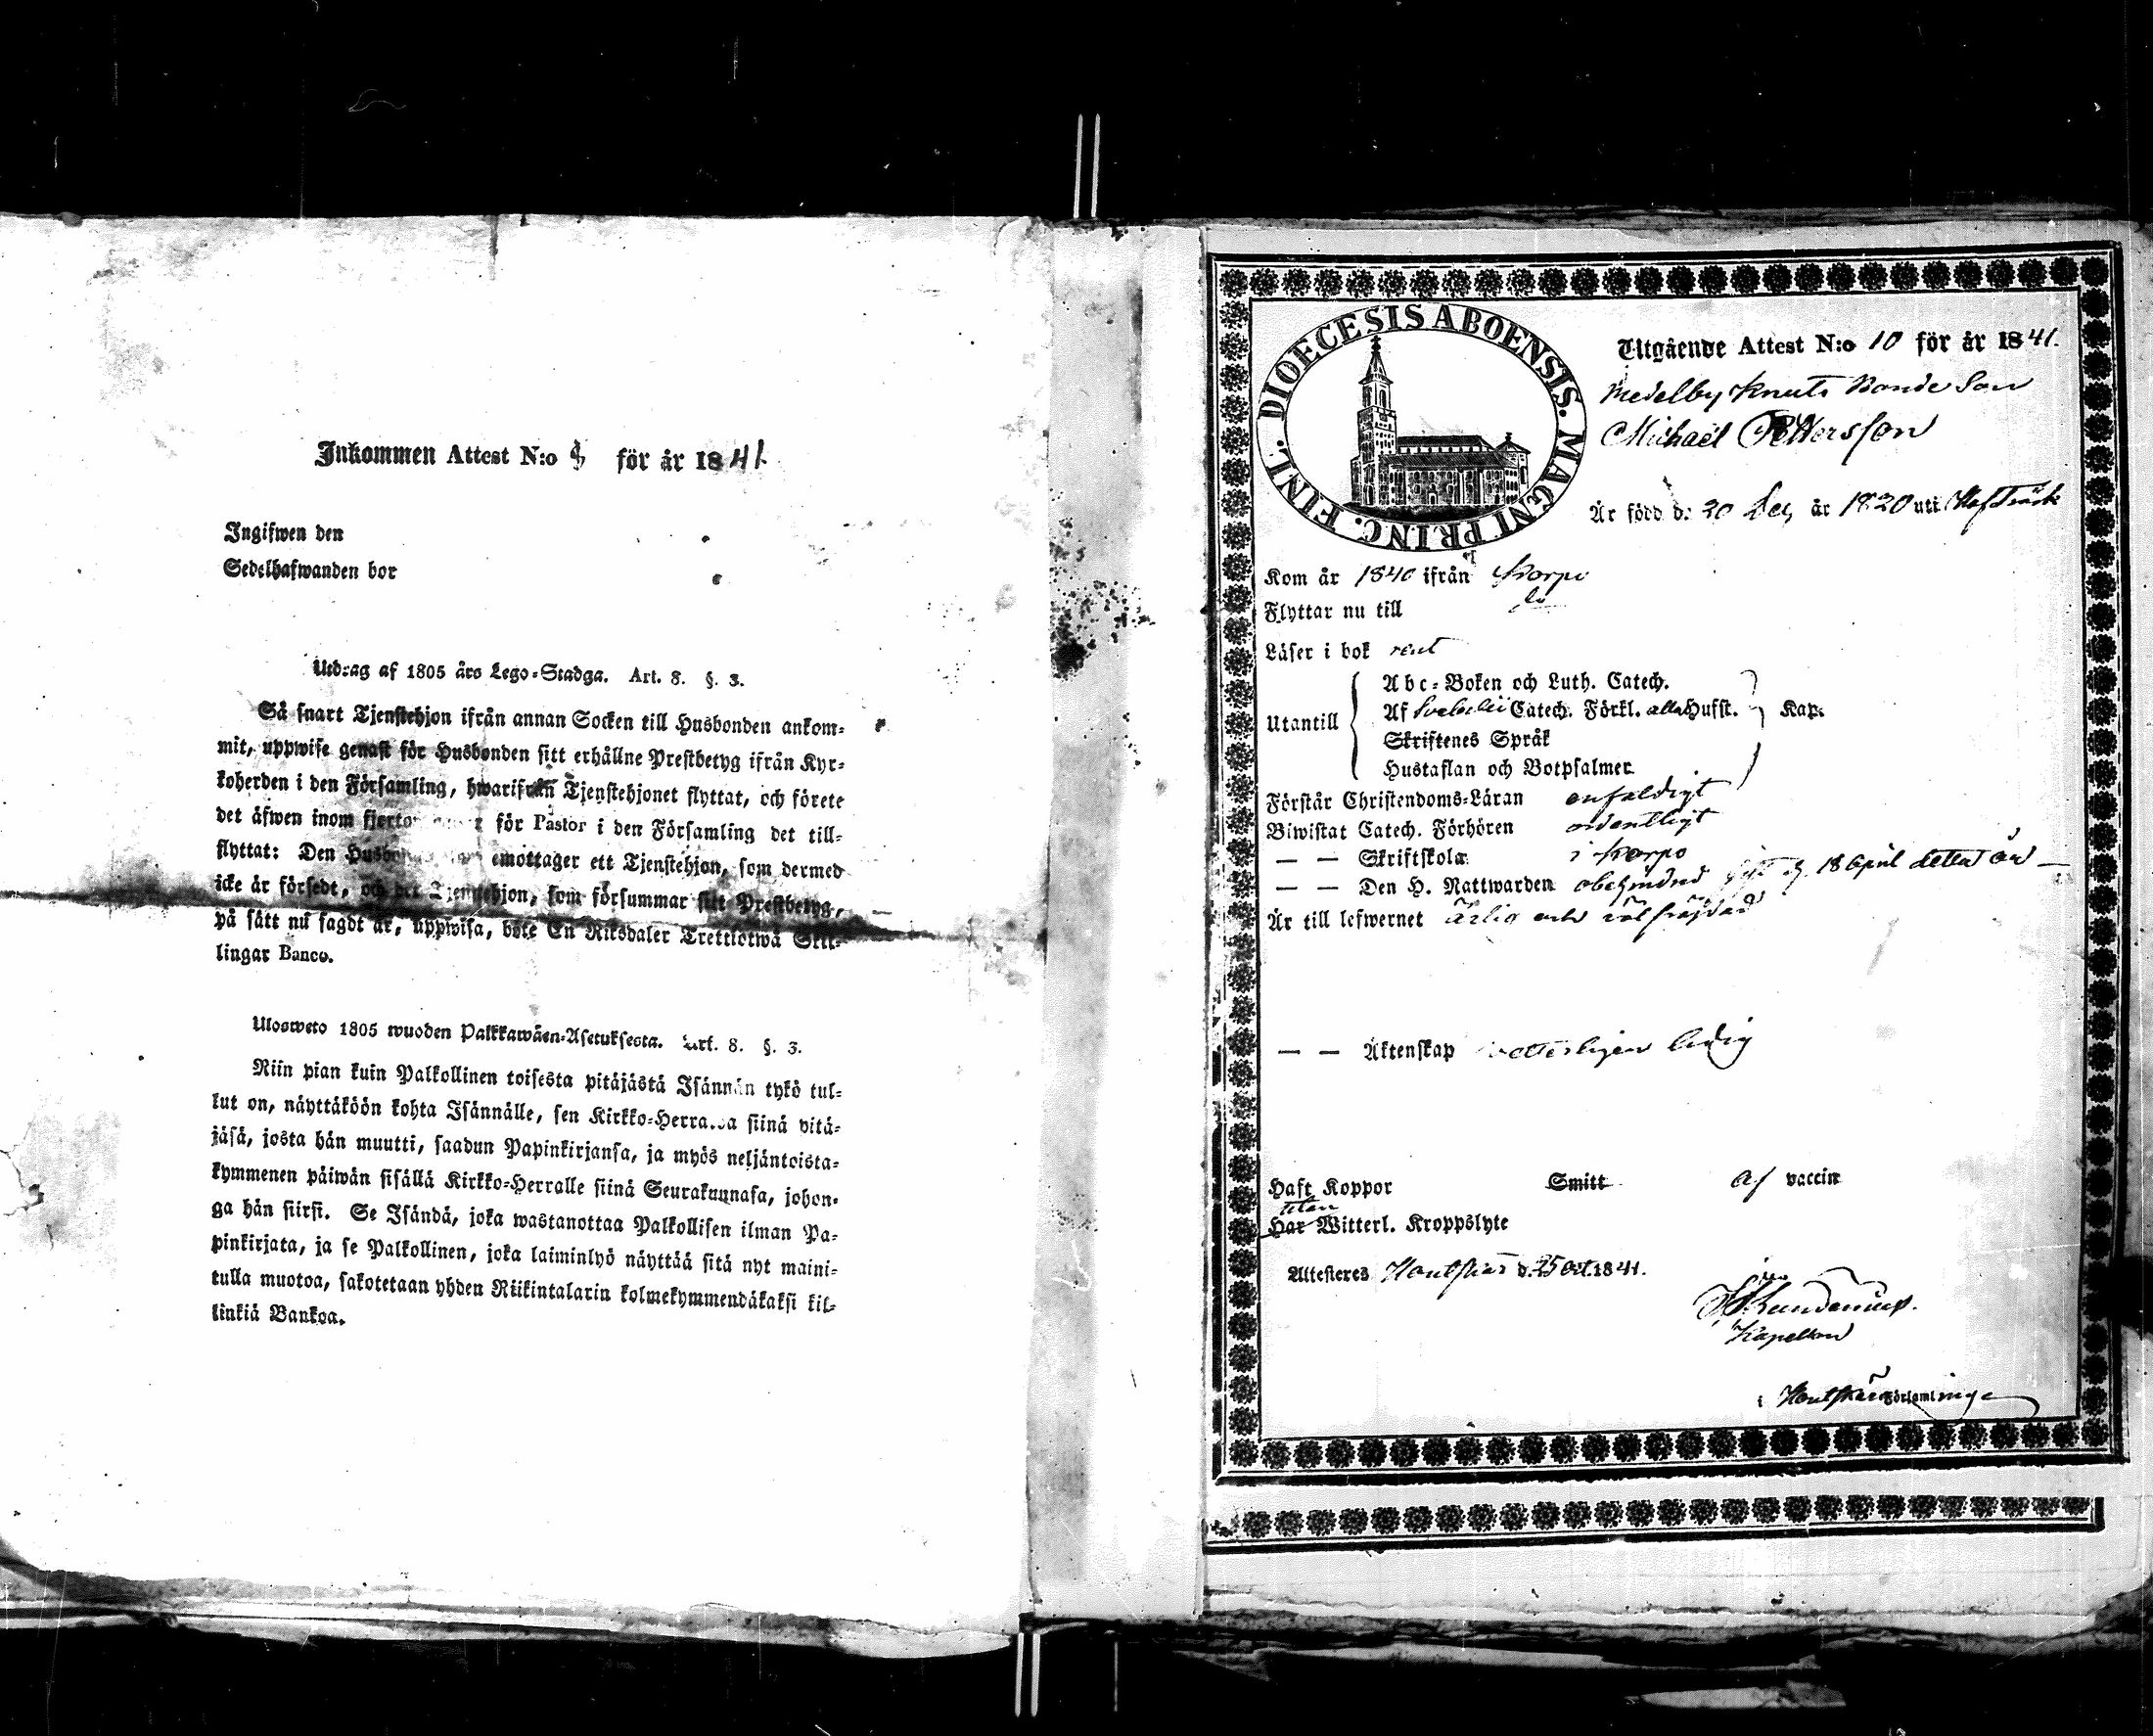 Inkommen Attest N:o för år 1841.
Ingifwen den
Sedelhafwanden bor
Utdrag af 1805 års Lego-Stadga. Art. 8. §. 3.
Så snart Tjenstehjon ifrån annan Socken till Husbonden ankom-
mit, uppwise genast för Husbonden sitt erhållne Prestbetyg ifrån Kyr-
koherden i den Församling, hwarifrån Tjenstehjonet flyttat, och förete
det äfwen inom för Pastor i den Församling det till-
flyttat: Den emottager ett Tjenstehjon, som dermed
icke är försedt, och det Tjenstehjon, som försummar sitt Prestbetyg,
på sätt nu sagdt är, uppwisa, böte En Riksdaler Trettiotwå Skil-
lingar Banco.
Ulosweto 1805 wuoden Palkkawäen-Asetuksesta. Art. 8. §. 3.
Niin pian kuin Palkollinen toisesta pitäjästä Isännän tykö tul-
lut on, näyttäköön kohta Isännälle, sen Kirkko-Herralta siinä pitä-
jäsä, josta hän muutti, saadun Papinkirjansa, ja myös neljäntoista-
kymmenen päiwän sisällä Kirkko-Herralle siinä Seurakunnasa, johon-
ga hän siirsi. Se Isändä, joka wastanottaa Palkollisen ilman Pa-
pinkirjata, ja se Palkollinen, joka laiminlyö näyttää sitä nyt maini-
tulla muotoa, sakotetaan yhden Riikintalarin kolmekymmendäkaksi kil-
linkiä Bankoa.
DIOECESIS ABOENSIS. MAGNI PRINC. FINL.
Utgående Attest N:o 10 för år 1841.
Medelby Knuts Bonde Son
Michaël Pettersson
Är född d: 30 Dec år 1820 uti
Kom år 1840 ifrån Korpo
Flyttar nu till do
Läser i bok rent
Utantill
Abc-Boken och Luth. Catech.
Af Svebelii Catech. Förkl. alla Hufst. Kap.
Skriftenes Språk
Hustaflan och Botpsalmer
Förstår Christendoms-Läran enfaldigt
Biwistat Catech. Förhören ordentligt
— — Skriftskola i Korpo
— — Den H. Nattwarden obehindrad 18 April detta år —
Är till lefwernet ärlig och väl fräjdad
— — Äktenskap vetterligen ledig
Haft Koppor Smitt af vaccin
utan
Har Witterl. Kroppslyte
Attesteras Houtskär d. 25 Oct. 1841.
Kapellan
i Houtskär Församlinge